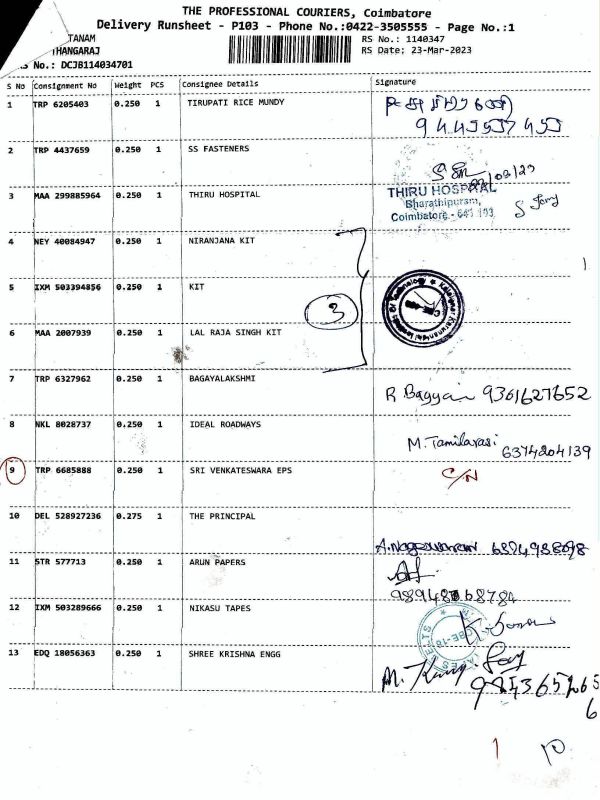 THE PROFESSIONAL COURIERS, Coimbatore
Delivery Runsheet - P103 - Phone No.:0422-3505555 - Page No.:1
TANAM
HANGARAJ
RS No.: 1140347
RS Date: 23-Mar-2023
S No.: DCJB114034701
S No Consignment No Weight PCS Consignee Details Signature
1 TRP 6205403 0.250 1 TIRUPATI RICE MUNDY
2 TRP 4437659 0.250 1 SS FASTENERS
3 MAA 299885964 0.250 1 THIRU HOSPITAL THIRU HOSPITAL
Bharathipuram,
Coimbatore -
4 NEY 40084947 0.250 1 NIRANJANA KIT
5 IXM 503394856 0.250 1 KIT
3
6 MAA 2007939 0.250 1 LAL RAJA SINGH KIT
7 TRP 6327962 0.250 1 BAGAYALAKSHMI
R Bagyan 9361627652
8 NKL 8028737 0.250 1 IDEAL ROADWAYS
M.Tamilarasi 6374204139
9 TRP 6685888 0.250 1 SRI VENKATESWARA EPS C/N
10 DEL 528927236 0.275 1 THE PRINCIPAL
11 STR 577713 0.250 1 ARUN PAPERS
12 IXM 503289666 0.250 1 NIKASU TAPES
13 EDQ 18056363 0.250 1 SHREE KRISHNA ENGG
1 10